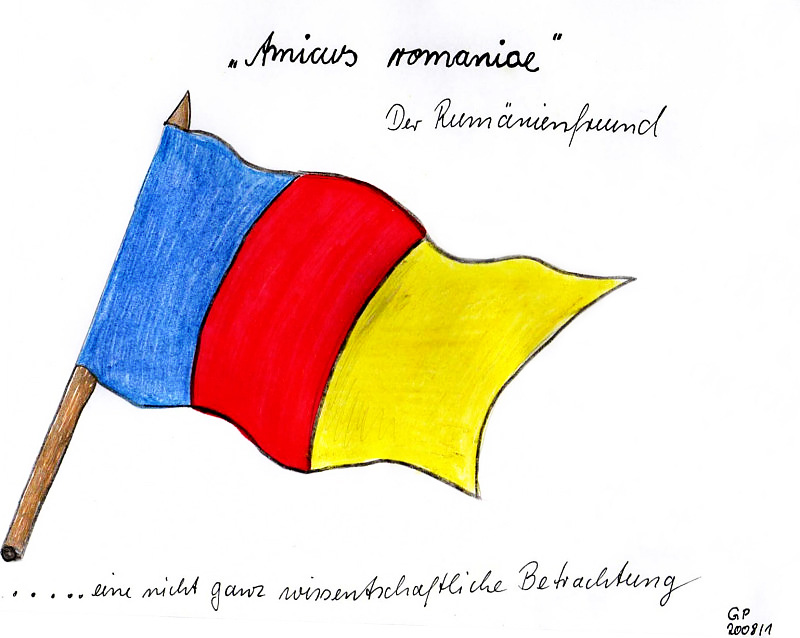 „Amicus romaniae“
Der Rumänienfreund
.....eine nicht ganz wissentschaftliche Betrachtung
GP
2008/1